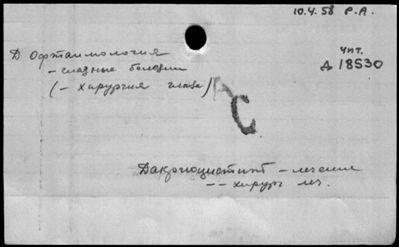 10.4.58 Р.А.
Чит.
Д 18530
D Офтальмология
- глазные болезни
(- хирургия глаза)
С
Дакриоцистит - лечение
-- хирург леч.